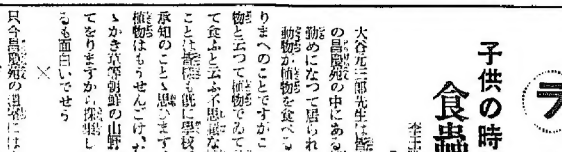 ラ
子供の時
食蟲
李王
大谷元三郎先生は皆
の昌慶苑の中にある
勤めになつて居られ
動物が植物を食べる
りまへのことですがこ
物と云つて植物でゐて
て食ふと云ふ不思議な
ことは皆樣も既に學校
承知のことゝ思ひます
植物はもうせんごけ、む
ゝかき草等朝鮮の山野
てをりますから採集し
るも面白いでせう
×
只今昌慶苑の溫室には